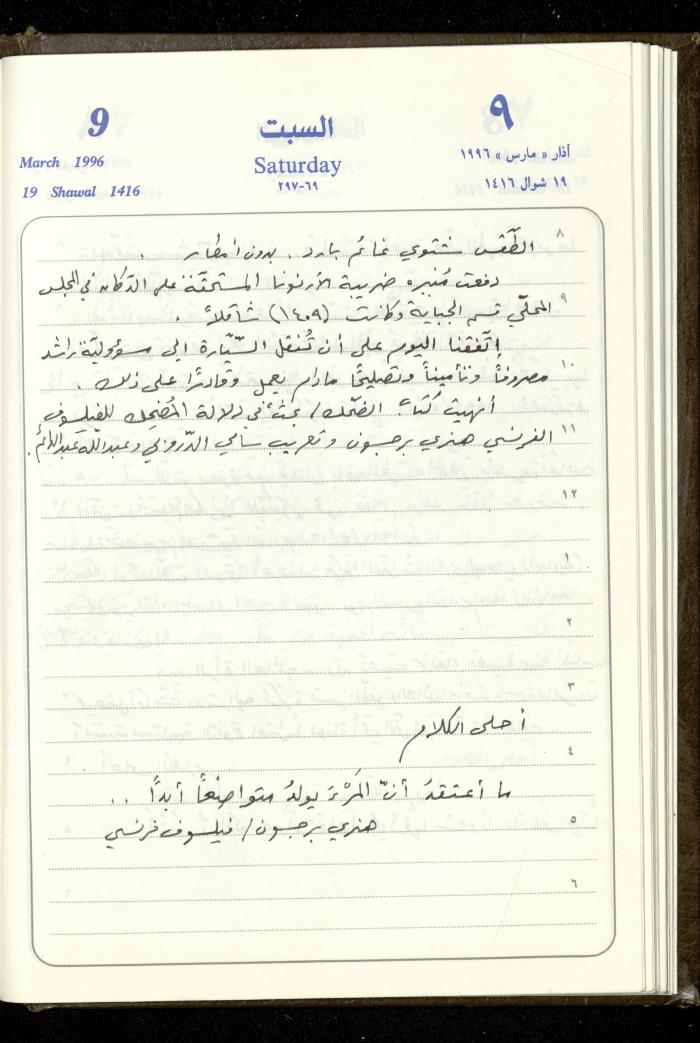 9
السبت
٩
March 1996
Saturday
آذار « مارس » ١٩٩٦
19 Shawal 1416
٦٩-٢٩٧
١٩ شوال ١٤١٦
٨
الطّقس شتوي غائم بارد . بدون أمطار .
دفعت مُنيره ضريبة الأرنونا المستحقّة على الدّكان في المجلس
٩
المحلّي قسم الجباية وكانت (١٤٠٩) شاقلاً .
إتّفقنا اليوم على أن تُنقل السّيّارة الى مسؤوليّة راشد
١٠
مصروفاً وتأميناً وتصليحًا مادام يعمل وقادرًا على ذلك .
أنهيت كتابَ الضّحك / بحث في دلالة المُضحِك للفيلسوف
١١
الفرنسي هنري برجسون وتعريب سامي الدّروبي وعبدالله عبدالدّائم
١٢
١
٢
٣
أحلى الكلام
٤
ما أعتقدُ أنّ المَرْءَ يولدُ متواضعاً أبدًا . .
٥
هنري برجسون / فيلسوف فرنسي
٦